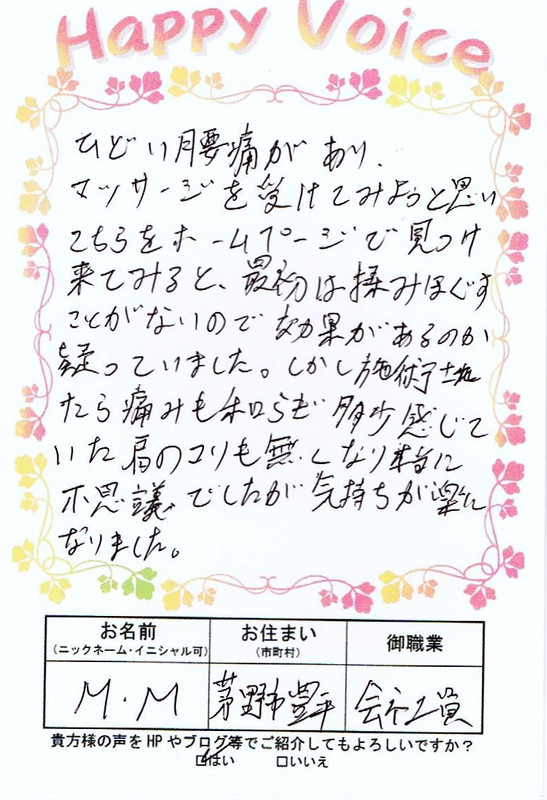 Happy Voice
ひどい腰痛があり、
マッサージを受けてみようと思い
こちらをホームページで見つけ
来てみると、最初は揉みほぐす
ことがないので効果があるのか
疑っていました。しかし施術
たら痛みも和らぎ多少感じて
いた肩のコリも無くなり本当に
不思議でしたが気持ちが楽に
なりました。
お名前 お住まい 御職業
(ニックネーム・イニシャル可) (市町村)
M.M 茅野市豊平 会社員
貴方様の声をHPやブログ等でご紹介してもよろしいですか?
□はい □いいえ